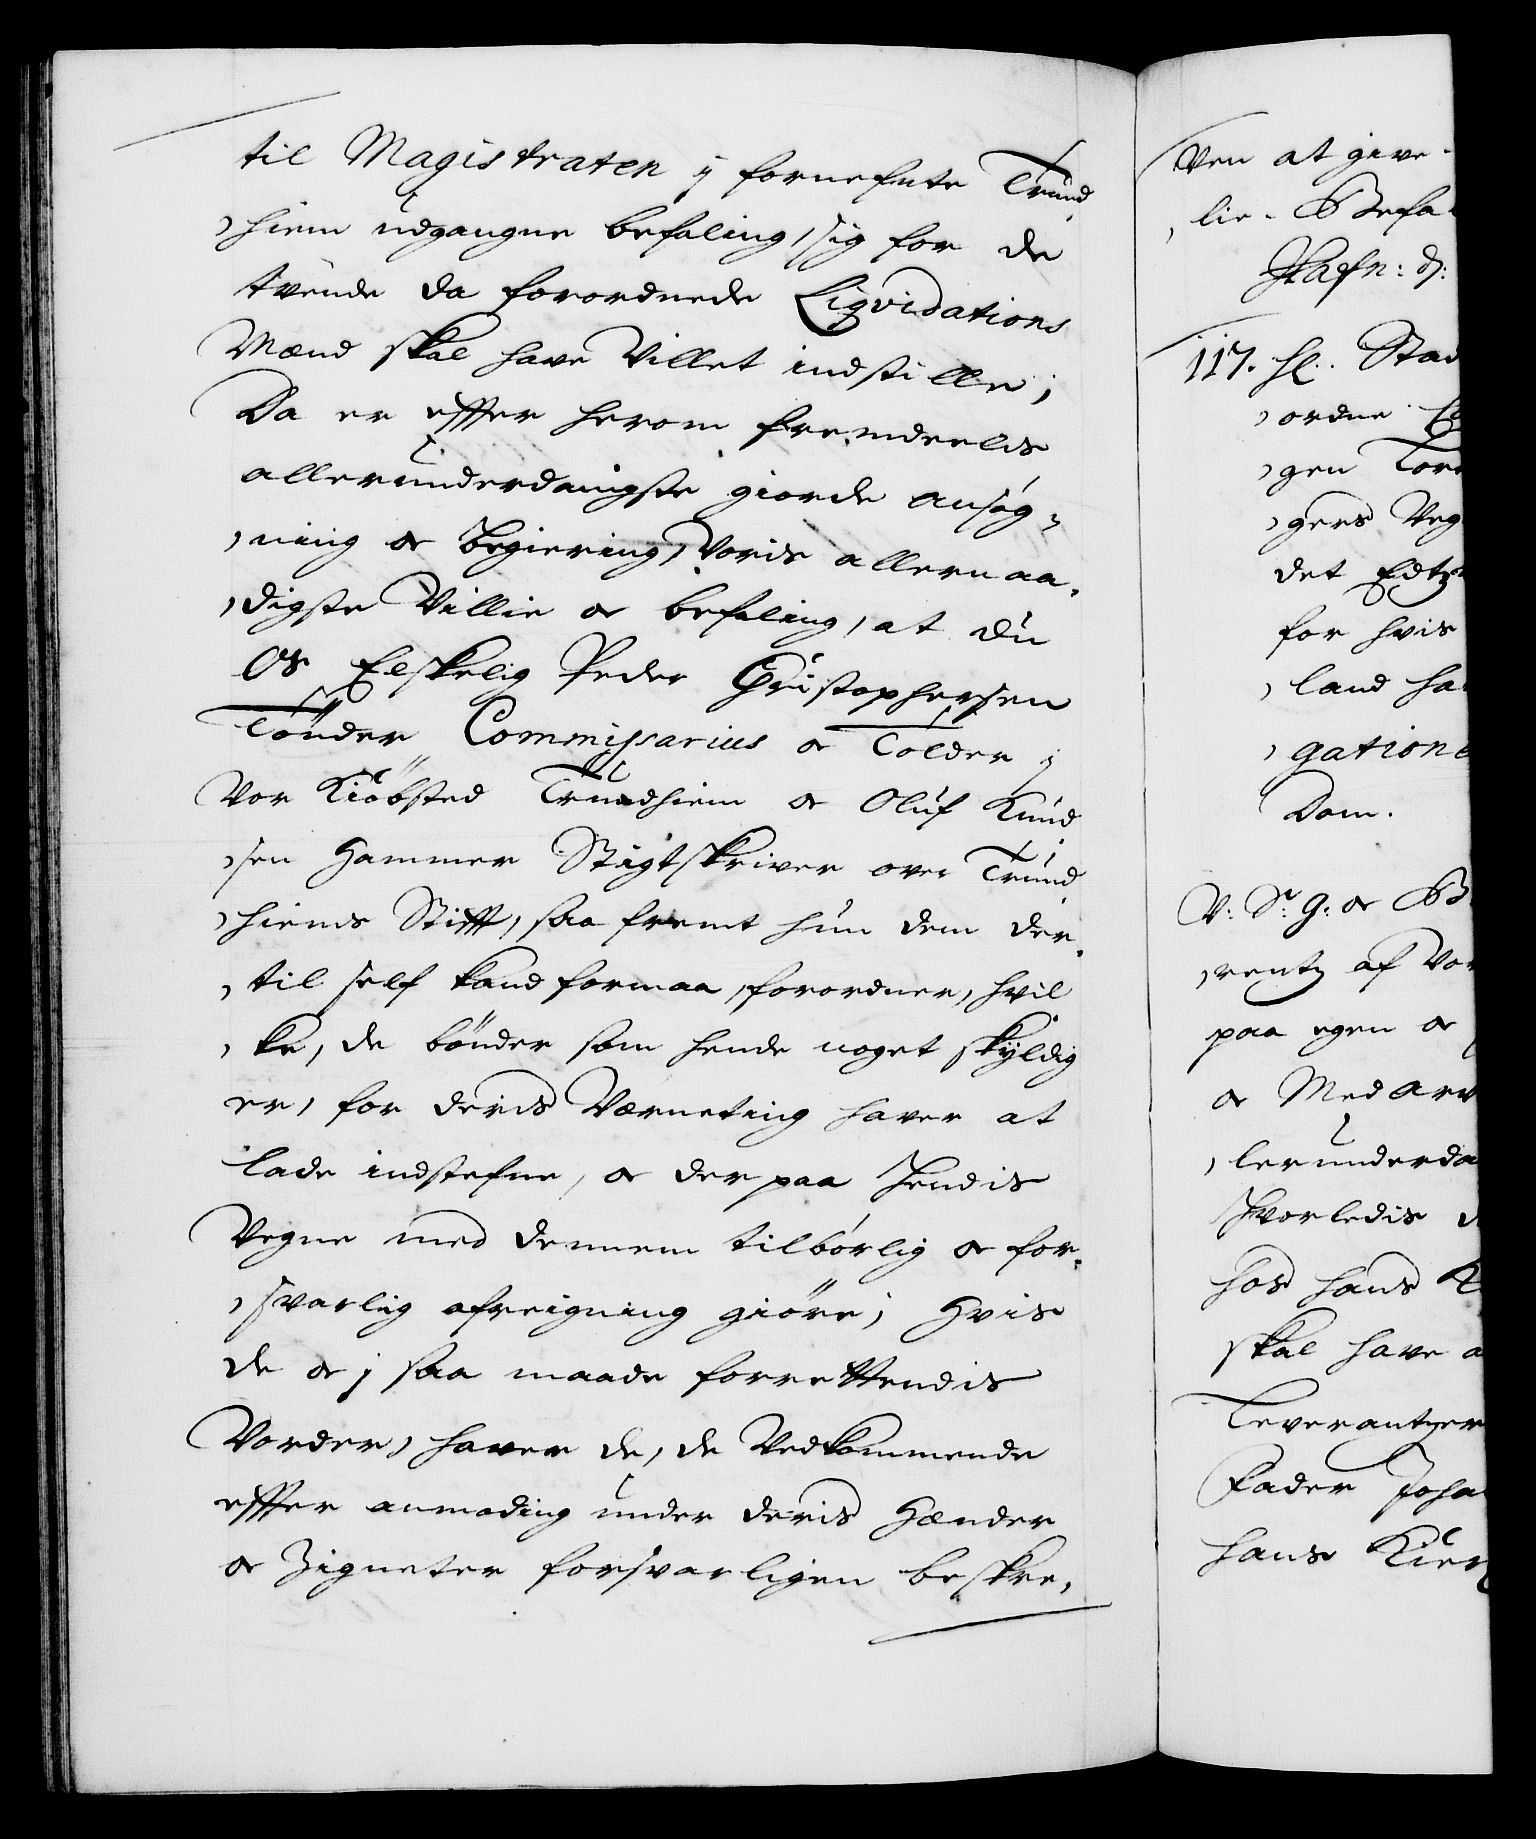 til Magistraten ÿ fornefnte Trund
hiem udgangne befaling, sig for de
tvende da forordnede Liqvidations
Mænd skal have Villet indstille;
Da er effter herom fremdeelis
allerunderdanigste giorde ansøg-
ning oc begiering, Voris allernaa-
digste Villie oc befaling, at du
Os Elskelig Peder Christophersen
Tönder Commissarius oc Tolder ÿ
Vor Kiöbsted Trundhiem oc Oluf Knud
sen Hammer Stigtskriver over Trund
hiems Stifft, saa fremt hun dem der-
til self kand formaa, forordner, hvil
ke, de bönder som hende noget skÿldig
er, for deris Værneting haver at
lade indstefne, oc der paa Hendis
Vegne med dennem tilbørlig oc for-
svarlig afreigning giöre; Hvis
de oc j saa maade forrettendis
Vorder, haver de, de Vedkommende
effter anmoding under deris Hænder
oc Zigneter forsvarligen beskre-
Ven at give
lie. Befa
Hafn: d:
117. Hl. Stad
ordne
gen Tor
gers Veg
det Edtz
for hvis
land ha
gatione
Dom.
V: Sr. g: oc B
rentz af Vor
paa egen oc
oc Med arv
lerunderda
Hvorledis
hos hans K
skal have a
Leverantzer
Fader Joha
hans Kier